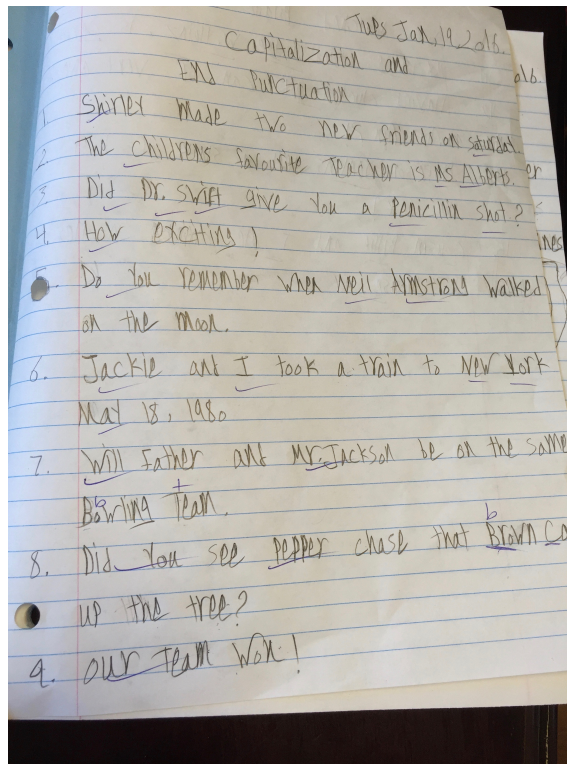 Tues Jan, 19, 2016.
Capitalization and
End Punctuation
1. Shirley made two new friends on saturday
2. The childrens favourite Teacher is Ms Alberts.
3. Did Dr. Swift give you a penicillin shot?
4. How exciting!
5. Do you remember when Neil Armstrong walked
on the moon.
6. Jackie and I took a train to New York
May 18, 1980
7. Will Father and Mr. Jackson be on the same
b t
Bowling Team.
b
8. Did you see pepper chase that Brown Ca
up the tree?
9. our Team won!
016.
er
nes